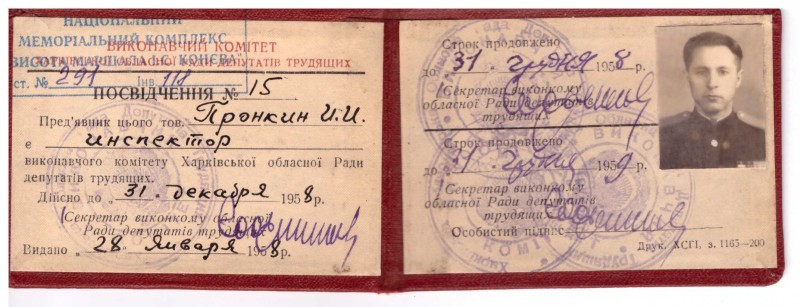 НАЦІОНАЛЬНИЙ
МЕМОРІАЛЬНИЙ КОМПЛЕКС
"ВИСОТА МАРШАЛА І.С. КОНЄВА"
ст. № 291 інв 118
ВИКОНАВЧИЙ КОМІТЕТ
ХАРКІВСЬКОЇ ОБЛАСНОЇ РАДИ ДЕПУТАТІВ ТРУДЯЩИХ
ПОСВІДЧЕННЯ № 15
Пред'явник цього тов. Пронкин И.И.
є инспектор
виконавчого комітету Харківської обласної Ради
депутатів трудящих.
Дійсно до „31" декабря 1958 р.
Секретар виконкому обласної
Ради депутатів трудящих
Видано „28" января 1958 р.
Строк продовжено
до „31" грудня 1958 р.
Секретар виконкому
обласної Ради депутатів
трудящих
Строк продовжено
до „31" грудня 1959 р.
Секретар виконкому
обласної Ради депутатів
трудящих
Особистий підпис
Друк. ХСГІ. з. 1165—200